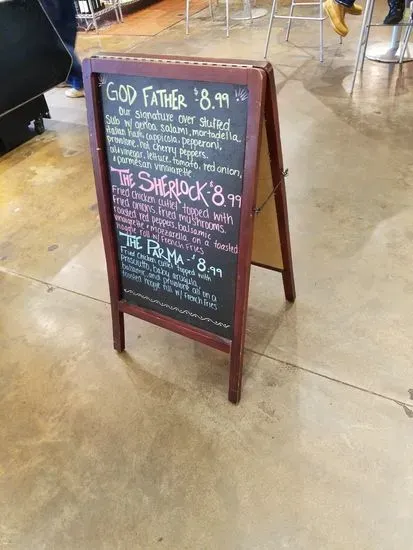 GOD FATHER $8.99
Our signature over stuffed
Sub w/ genoa salami, mortadella,
italian ham, cappicola, pepperoni,
provolone, hot cherry peppers,
oil/vinegar, lettuce, tomato, red onion,
& parmesan vinaigrette
THE SHERLOCK $8.99
Fried chicken cutlet topped with
fried onions, fried mushrooms,
roasted red peppers, balsamic
vinaigrette & mozzarella, on a toasted
hoagie roll w/ French fries
THE PARMA $8.99
Fried chicken cutlet topped with
prosciutto, baby arugula,
balsamic, and provolone all on a
toasted hoagie roll w/ French fries